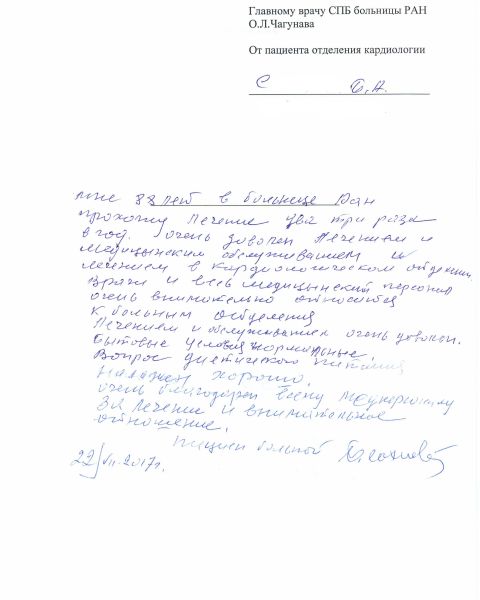 Главному врачу СПБ больницы РАН
О.Л.Чагунава
От пациента отделения кардиологии
С Б.А.
мне 88 лет в больнице Ран
прохожу лечение два три раза
в год. очень доволен лечением и
медицынским обслуживанием и
лечением в кардиологическом отделении.
Врачи и весь медицынский персонал
очень внимательно относится
к больным отделения
Лечением и обслуживанием очень доволен.
Бытовые условия нормальные.
Вопрос диетического питания
налажен хорошо.
очень благодарен всему медперсоналу
за лечение и внимательное
отношение.
больной
22/VII-2017г.